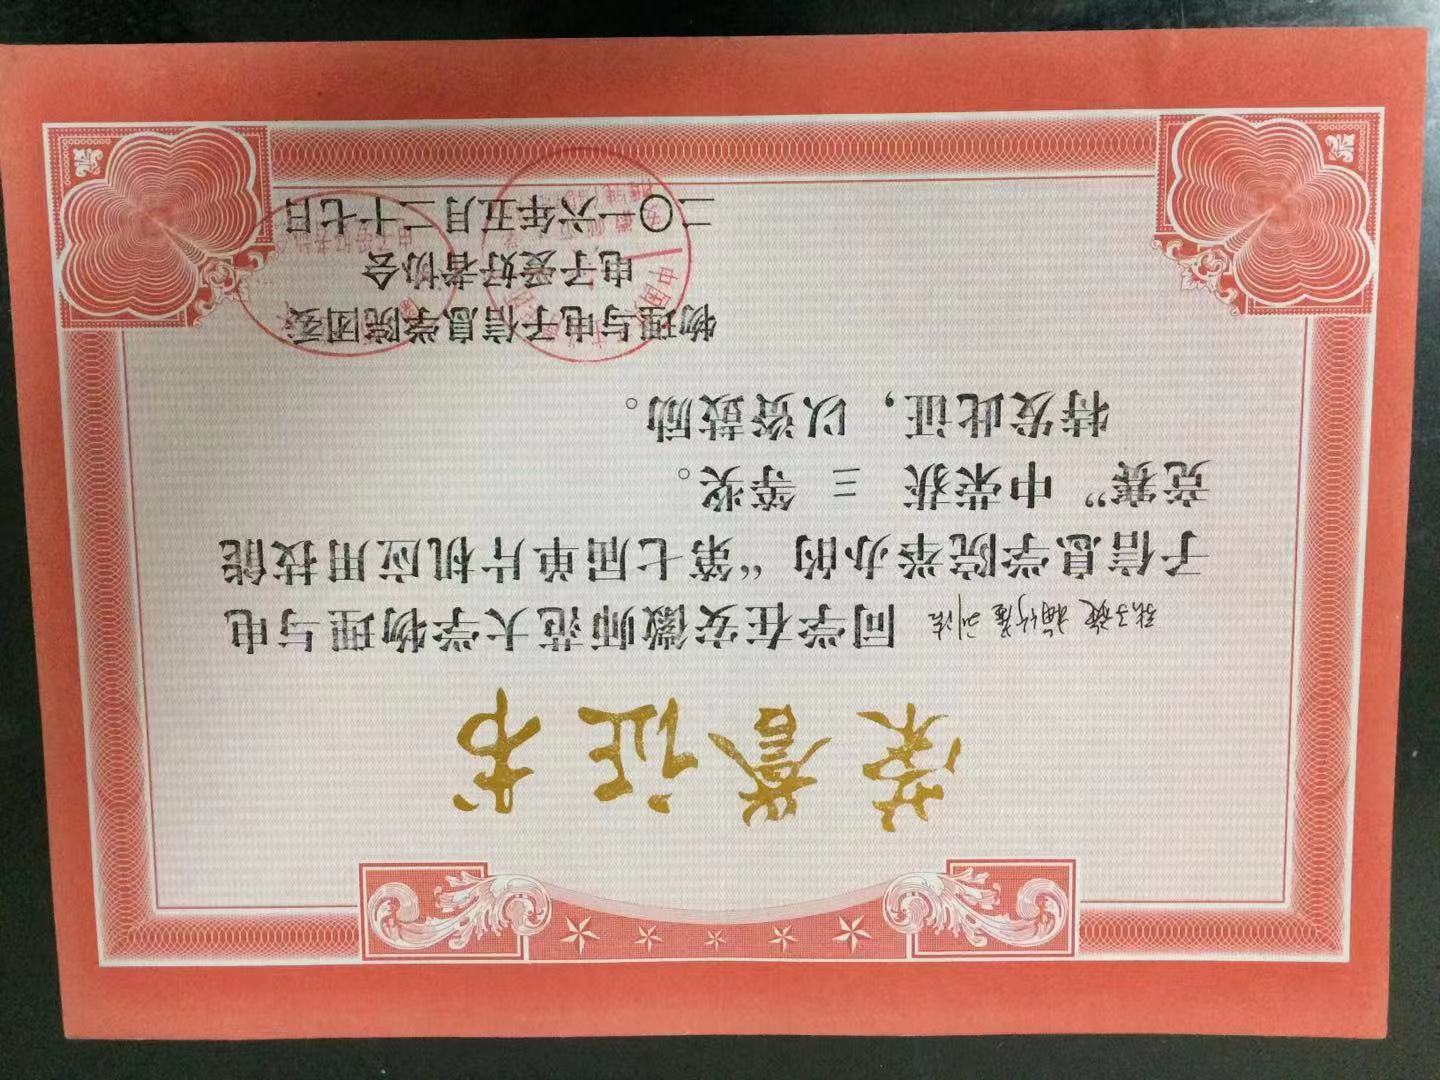 荣誉证书
张子旋 梅竹 刘洁 同学在安徽师范大学物理与电
子信息学院举办的“第七届单片机应用技能
竞赛”中荣获 三 等奖。
特发此证，以资鼓励。
物理与电子信息学院团委
电子爱好者协会
二〇一六年五月二十七日
电子爱好者协会